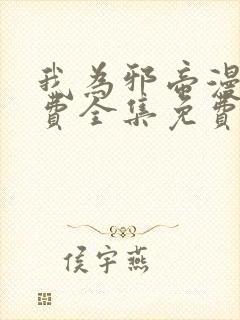 我为邪帝漫
费全集免费
侯宇燕